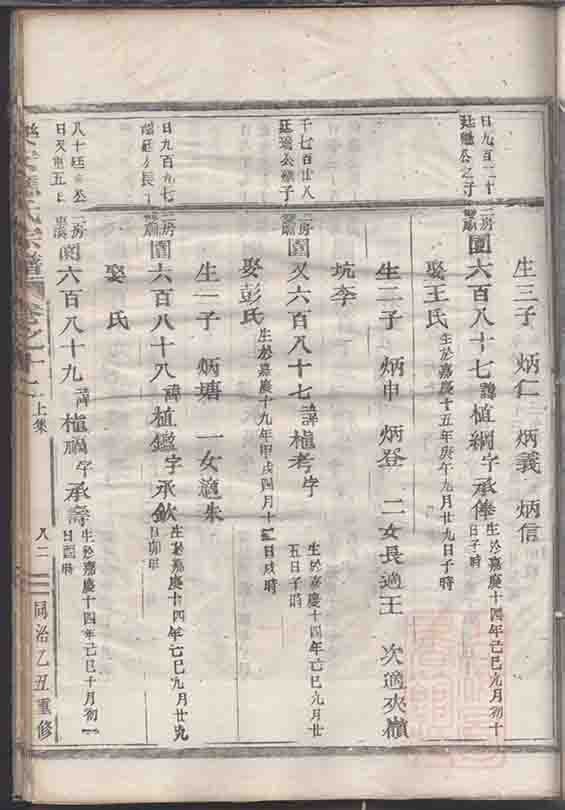 生三子 炳仁 炳義 炳信
日九百二十二房
廷 公之子
園六百八十七諱植綱字承俸生於嘉慶十四年己巳九月初十
日子時
娶王氏生於嘉慶十五年庚午九月廿九日子時
生二子 炳申 炳登 二女長適王 次適夾嶺
坑李
千七百廿八二房
廷 公 子
園又六百八十七諱植考字 生於嘉慶十四年己巳九月廿
五日子時
娶彭氏生於嘉慶十九年甲戌四月十 日戌時
生一子 炳塘 一女適朱
日九百九七二房
廷 公長子
園六百八十八諱植鑑字承欽生於嘉慶十四年己巳九月廿九
日卯時
娶 氏
八十廷 公二房
日 五
園六百八十九諱植 字承壽生於嘉慶十四年己巳十月初一
日酉時
氏宗譜 卷之十 上集 八二 同治乙丑重修